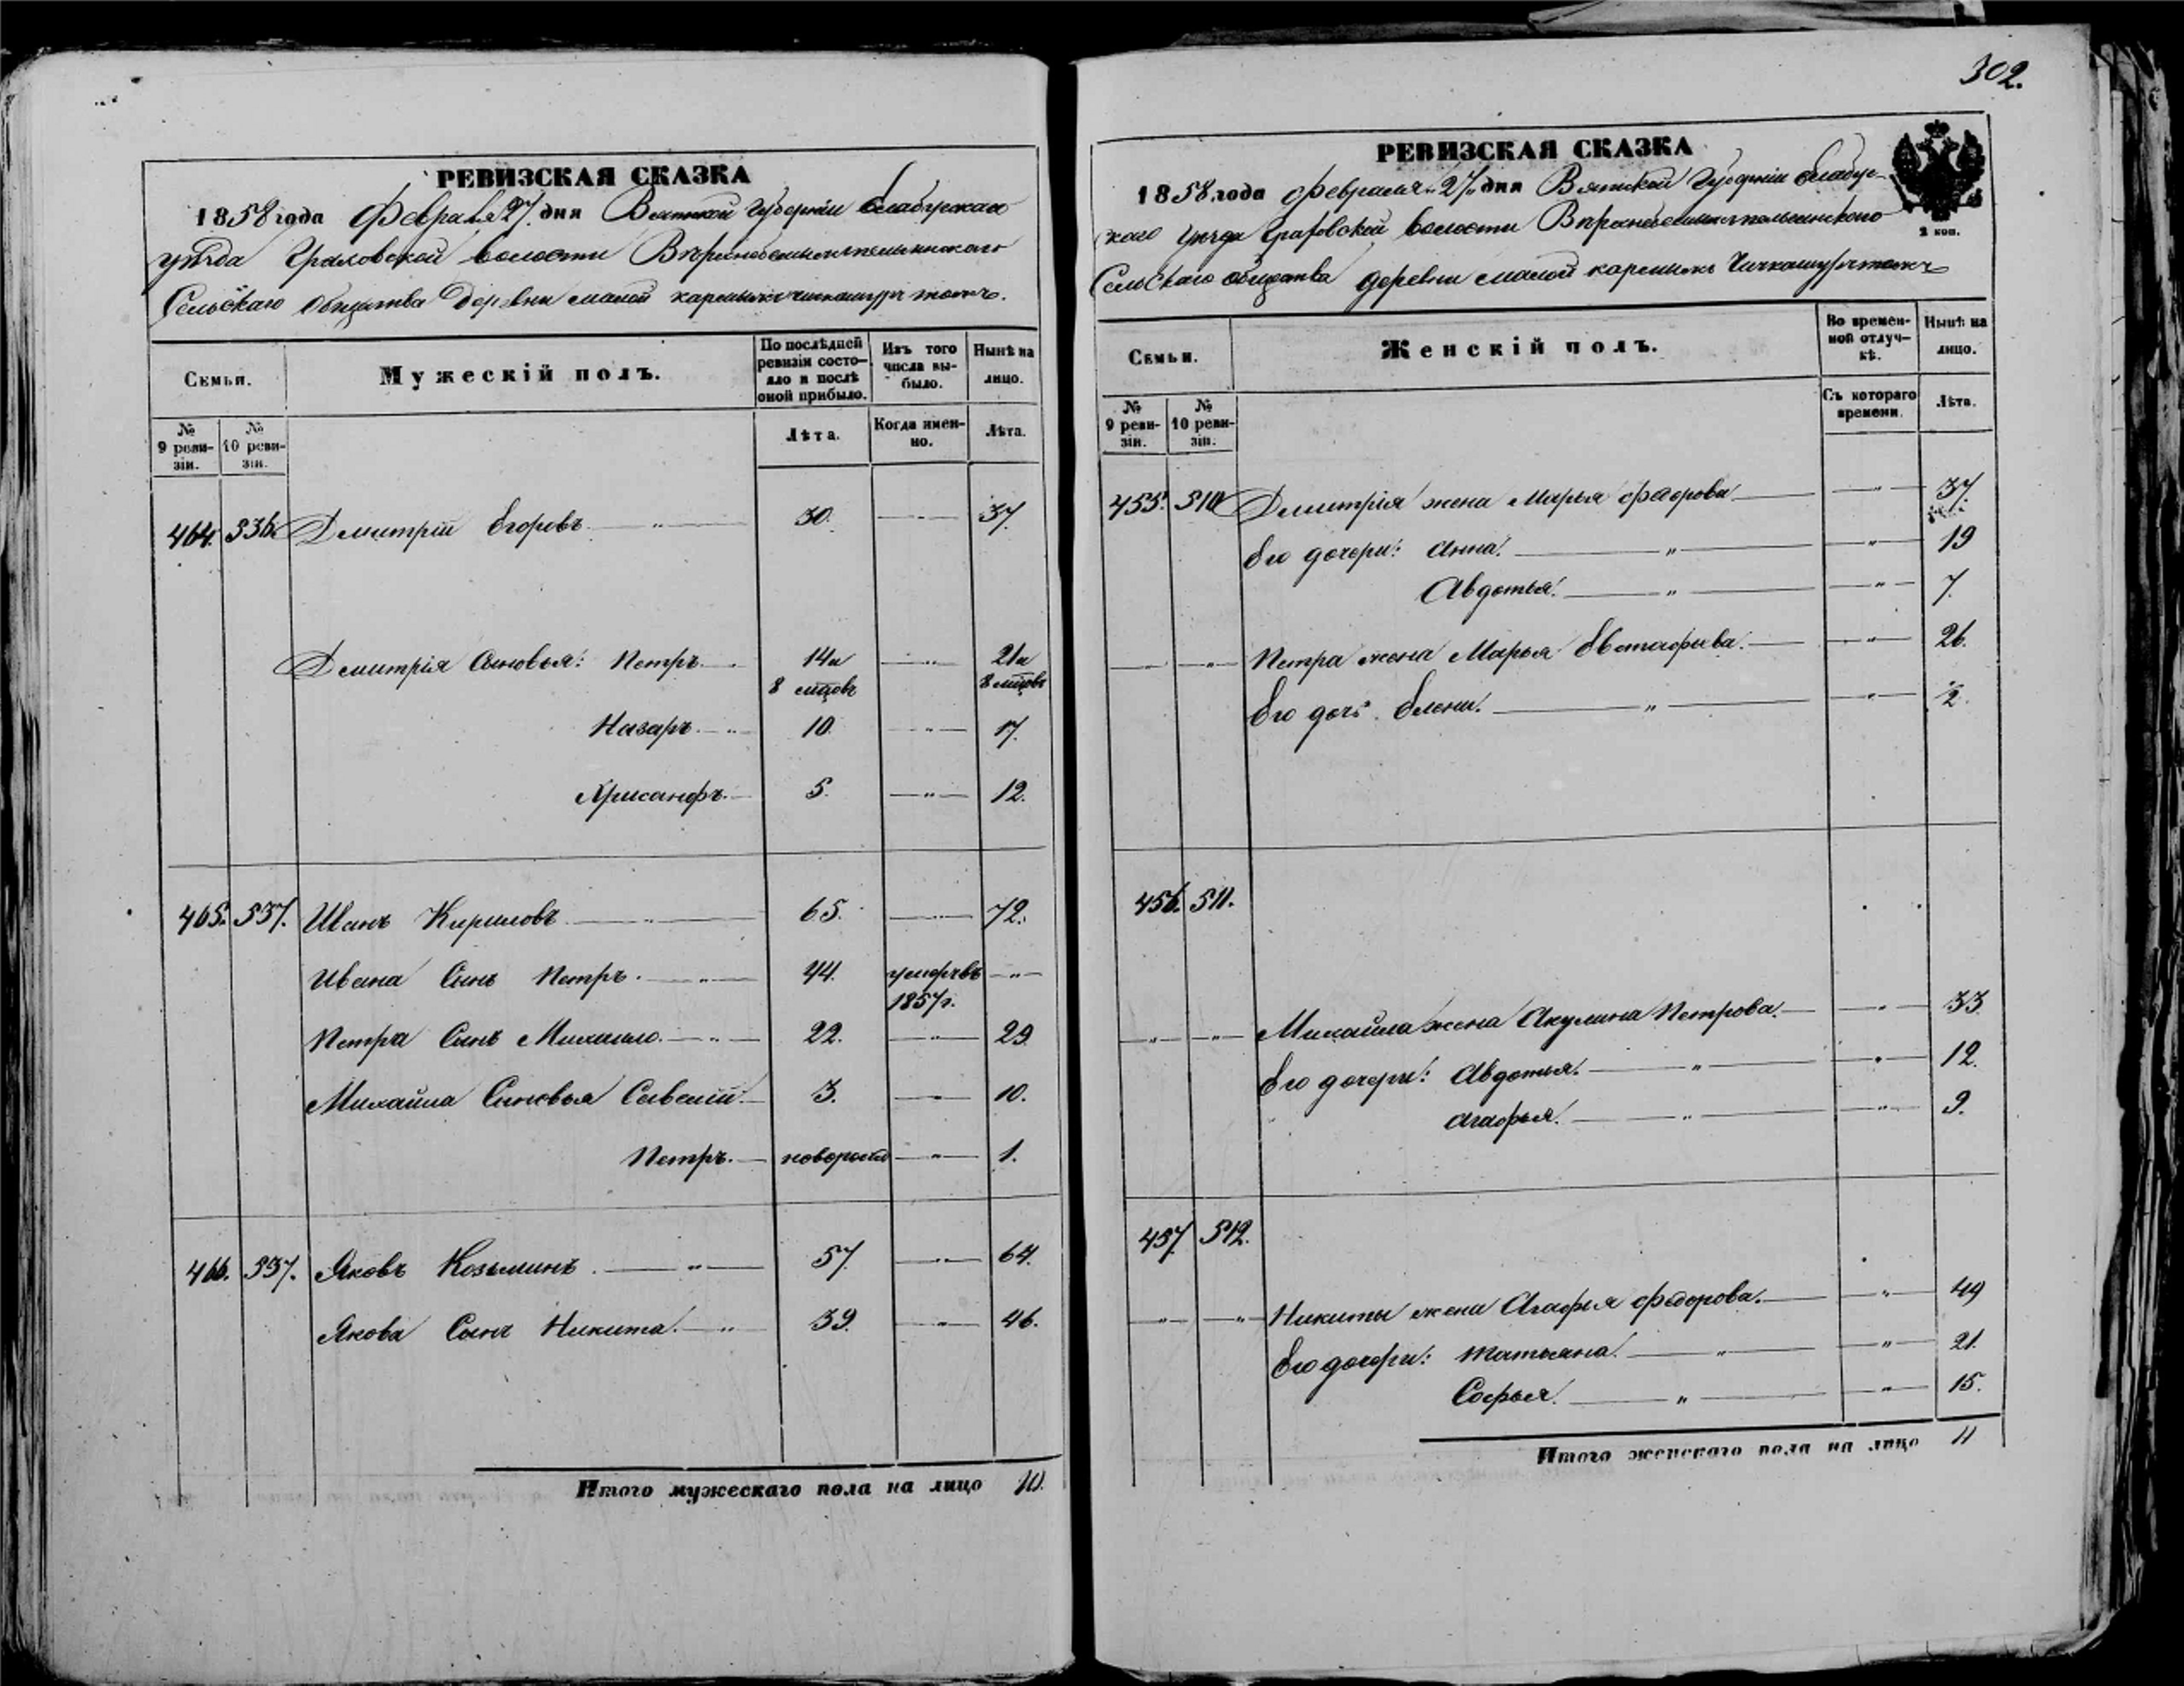 302.
РЕВИЗСКАЯ СКАЗКА
1858 года Февраля 27. дня Вятской Губерніи Елабужскаго
уѣзда Граховской волости
Сельскаго Общества Деревни малой
Семьи.
Мужескій полъ.
По послѣдней ревизіи состояло и послѣ оной прибыло.
Изъ того числа выбыло.
Нынѣ на лицо.
№ 9 ревизіи.
№ 10 ревизіи.
Лѣта.
Когда именно.
Лѣта.
464. 536. Дмитрій Егоровъ — " — 30. — " — 37.
Дмитрія Сыновья: Петръ. — 14 и 8 мцовъ — " — 21 и 8 мцовъ
Назаръ. — " — 10. — " — 17.
Хрисанфъ. — 5. — " — 12.
465. 537. Иванъ Кириловъ — " — 65. — " — 72.
Ивана Сынъ Петръ. — " — 44. умеръ въ 1857 г. — " —
Петра Сынъ Михаило. — " — 22. — " — 29.
Михаила Сыновья Савелій. — 3. — " — 10.
Петръ. — новорож — " — 1.
466. 537. Яковъ Козьминъ. — " — 57. — " — 64.
Якова Сынъ Никита. — " — 39. — " — 46.
Итого мужескаго пола на лицо 10.
РЕВИЗСКАЯ СКАЗКА
1858 года Февраля 27 дня Вятской Губерніи Елабуж-
скаго уѣзда Граховской волости
Сельскаго общества деревни малой
2 коп.
Семьи.
Женскій полъ.
Во временной отлучкѣ.
Нынѣ на лицо.
№ 9 ревизіи.
№ 10 ревизіи.
Съ котораго времени.
Лѣта.
455. 510. Дмитрія жена Марья Федорова — " — 37.
Его дочери: Анна. — " — " — 19
Авдотья. — " — " — 7.
— " — Петра жена Марья Евстафьева. — " — 26.
Его дочь Елена. — " — " — 2.
456. 511.
— " — " — Михайла жена Акулина Петрова. — " — 33.
Его дочери: Авдотья. — " — " — 12.
Агафья. — " — " — 9.
457. 512.
— " — " — Никиты жена Агафья Федорова. — " — 49
Его дочери: Татьяна. — " — " — 21.
Софья. — " — " — 15.
Итого женскаго пола на лицо 11